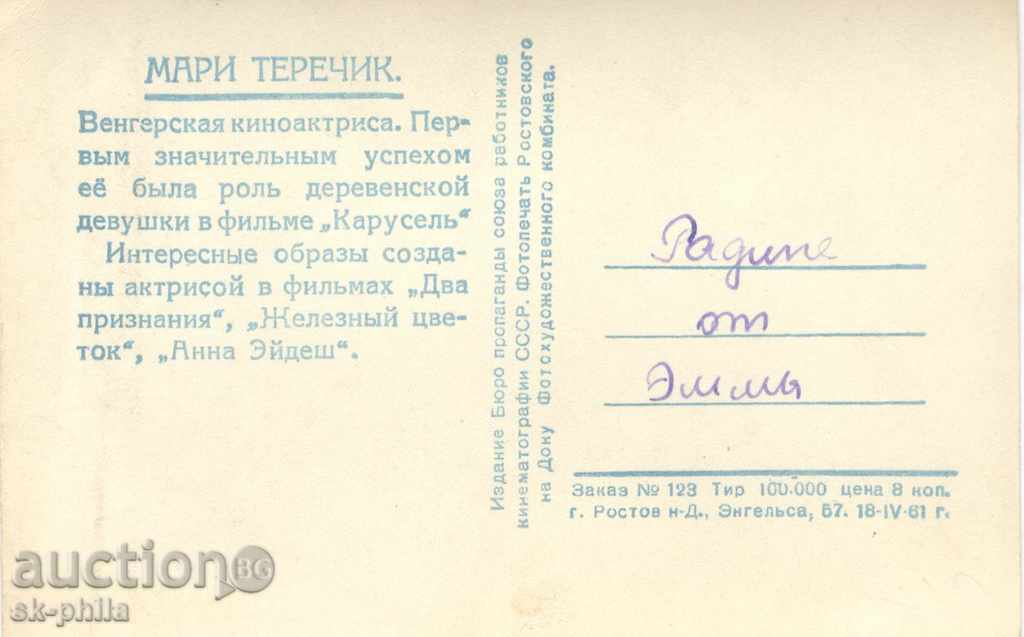 МАРИ ТЕРЕЧИК.
Венгерская киноактриса. Пер-
вым значительным успехом
её была роль деревенской
девушки в фильме „Карусель“
Интересные образы созда-
ны актрисой в фильмах „Два
признания“, „Железный цве-
ток“, „Анна Эйдеш“.
Издание Бюро пропаганды союза работников
кинематографии СССР. Фотопечать Ростовского
на Дону Фотохудожественного комбината.
Радине
от
Эммы
Заказ № 123 Тир 100.000 цена 8 коп.
г. Ростов н-Д., Энгельса, 57. 18-IV-61 г.
auction BG
sk-phila